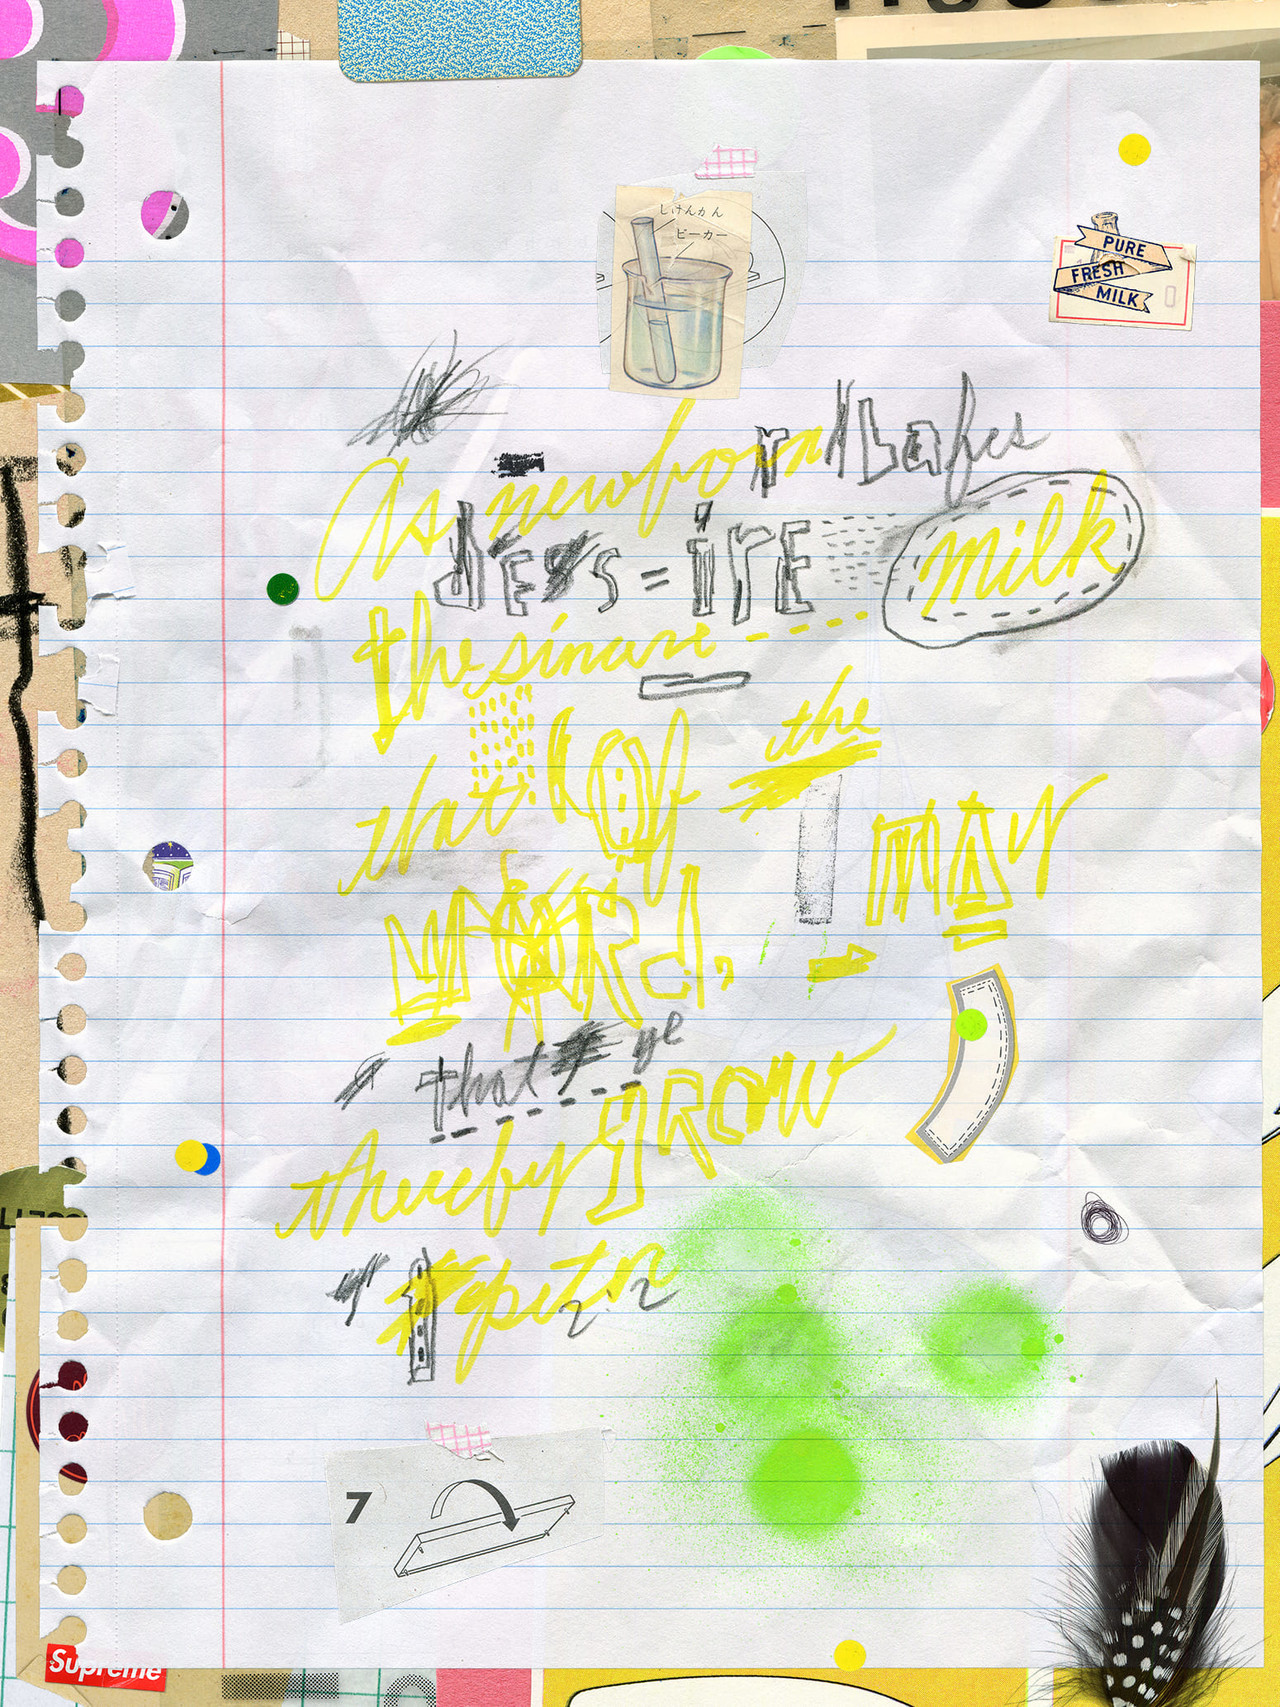 しけんかん
ビーカー
PURE
FRESH
MILK
As newborn babes
des=ire milk
the sincere
milk of the
word, may
that ye
thereby grow
1 peter
2:2
7
Supreme